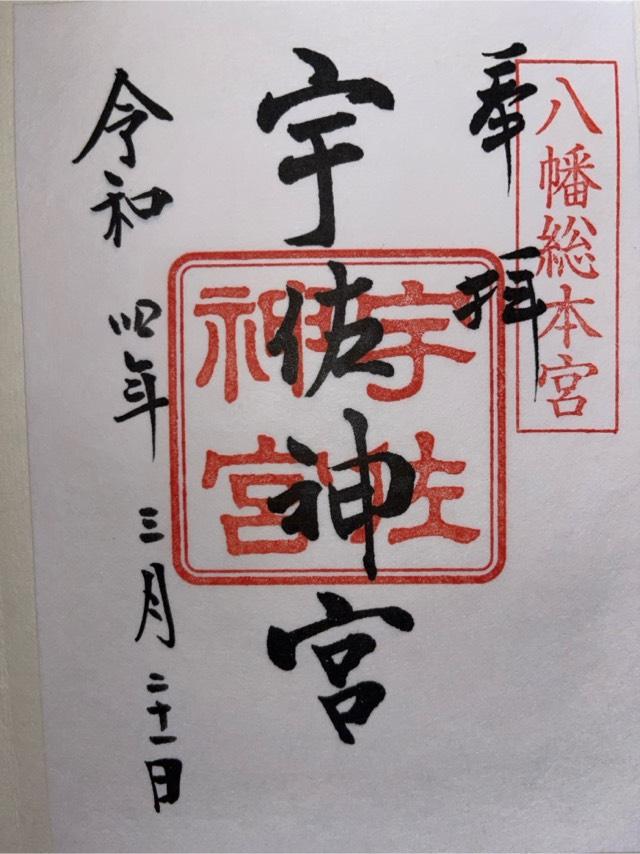 八幡総本宮
奉拝
宇佐神宮
宇佐神宮
令和四年三月二十一日